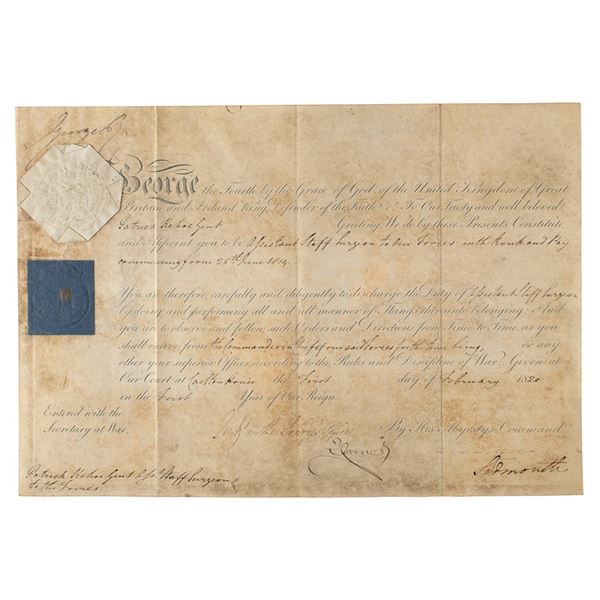 George R
George the Fourth by the Grace of God, of the United Kingdom of Great
Britain and Ireland King, Defender of the Faith &c. To Our Trusty and well beloved
Patrick Kehoe Gent Greeting: We do by these Presents Constitute
and Appoint you to be Assistant Staff Surgeon to Our Forces in the Rank and Pay
commencing from 25th June 1819.
You are therefore carefully and diligently to discharge the Duty of Assistant Staff Surgeon
by doing and performing all and all manner of Things thereunto belonging. And
you are to observe and follow such Orders and Directions from Time to Time, as you
shall receive from the Commander in Chief of our said Forces for the time being or any
other your superior Officer, according to the Rules and Discipline of War. Given at
Our Court at Carlton House the First day of February 1820
in the First Year of Our Reign.
Entered with the
Secretary at War
By His Majesty's Command
Sidmouth
Patrick Kehoe Gent Asst Staff Surgeon
to the Forces